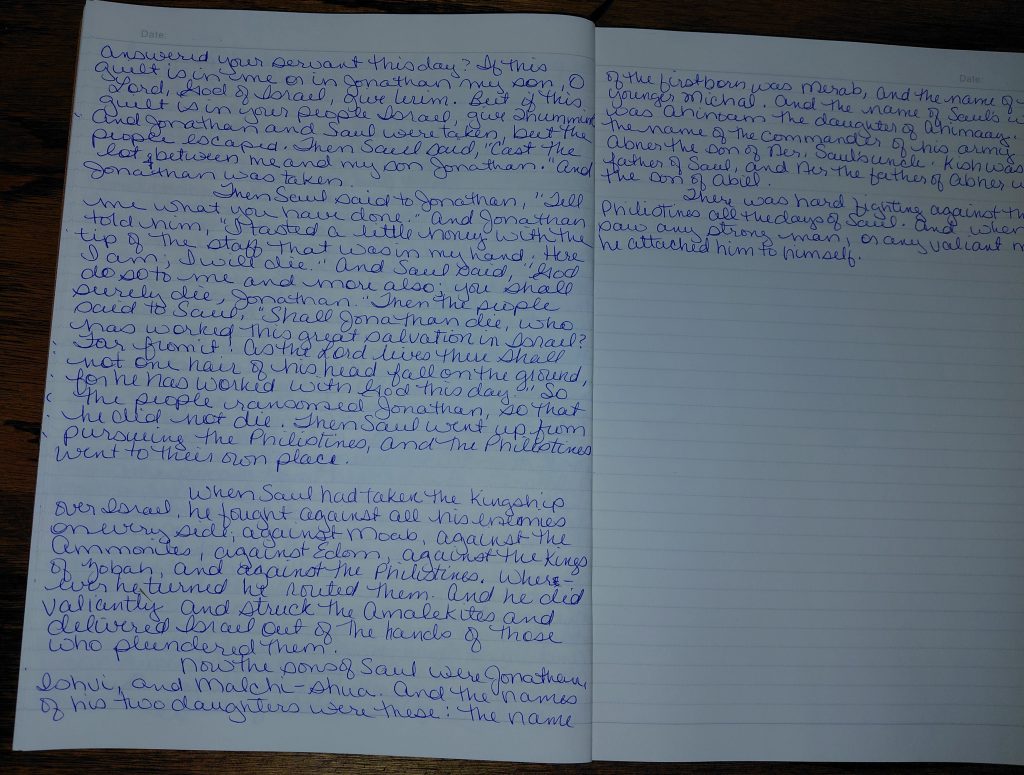 Date:
answered your servant this day? If this
guilt is in me or in Jonathan my son, O
Lord, God of Israel, give Urim. But if this
guilt is in your people Israel, give Thummim
And Jonathan and Saul were taken, but the
people escaped. Then Saul said, "Cast the
lot between me and my son Jonathan." And
Jonathan was taken.
Then Saul said to Jonathan, "Tell
me what you have done." And Jonathan
told him, "I tasted a little honey with the
tip of the staff that was in my hand. Here
I am; I will die." And Saul said, "God
do so to me and more also; you shall
surely die, Jonathan." Then the people
said to Saul, "Shall Jonathan die, who
has worked this great salvation in Israel?
Far from it! As the Lord lives there shall
not one hair of his head fall on the ground,
for he has worked with God this day." So
the people ransomed Jonathan, so that
he did not die. Then Saul went up from
pursueing the Philistines, and the Philistines
went to their own place.
When Saul had taken the kingship
over Israel, he fought against all his enemies
on every side, against Moab, against the
Ammonites, against Edom, against the kings
of Zobah, and against the Philistines. Where-
ever he turned he routed them. And he did
valiantly and struck the Amalekites and
delivered Israel out of the hands of those
who plundered them.
Now the sons of Saul were Jonathan,
Ishvi, and Malchi-shua. And the names
of his two daughters were these: the name
Date:
of the firstborn was Merab, and the name of
younger Michal. And the name of Saul's
was Ahinoam the daughter of Ahimaaz.
the name of the commander of his army
Abner the son of Ner, Saul's uncle. Kish was
father of Saul, and Ner the father of Abner
the son of Abiel.
There was hard fighting against the
Philistines all the days of Saul. And when
saw any strong man, or any valiant
he attached him to himself.